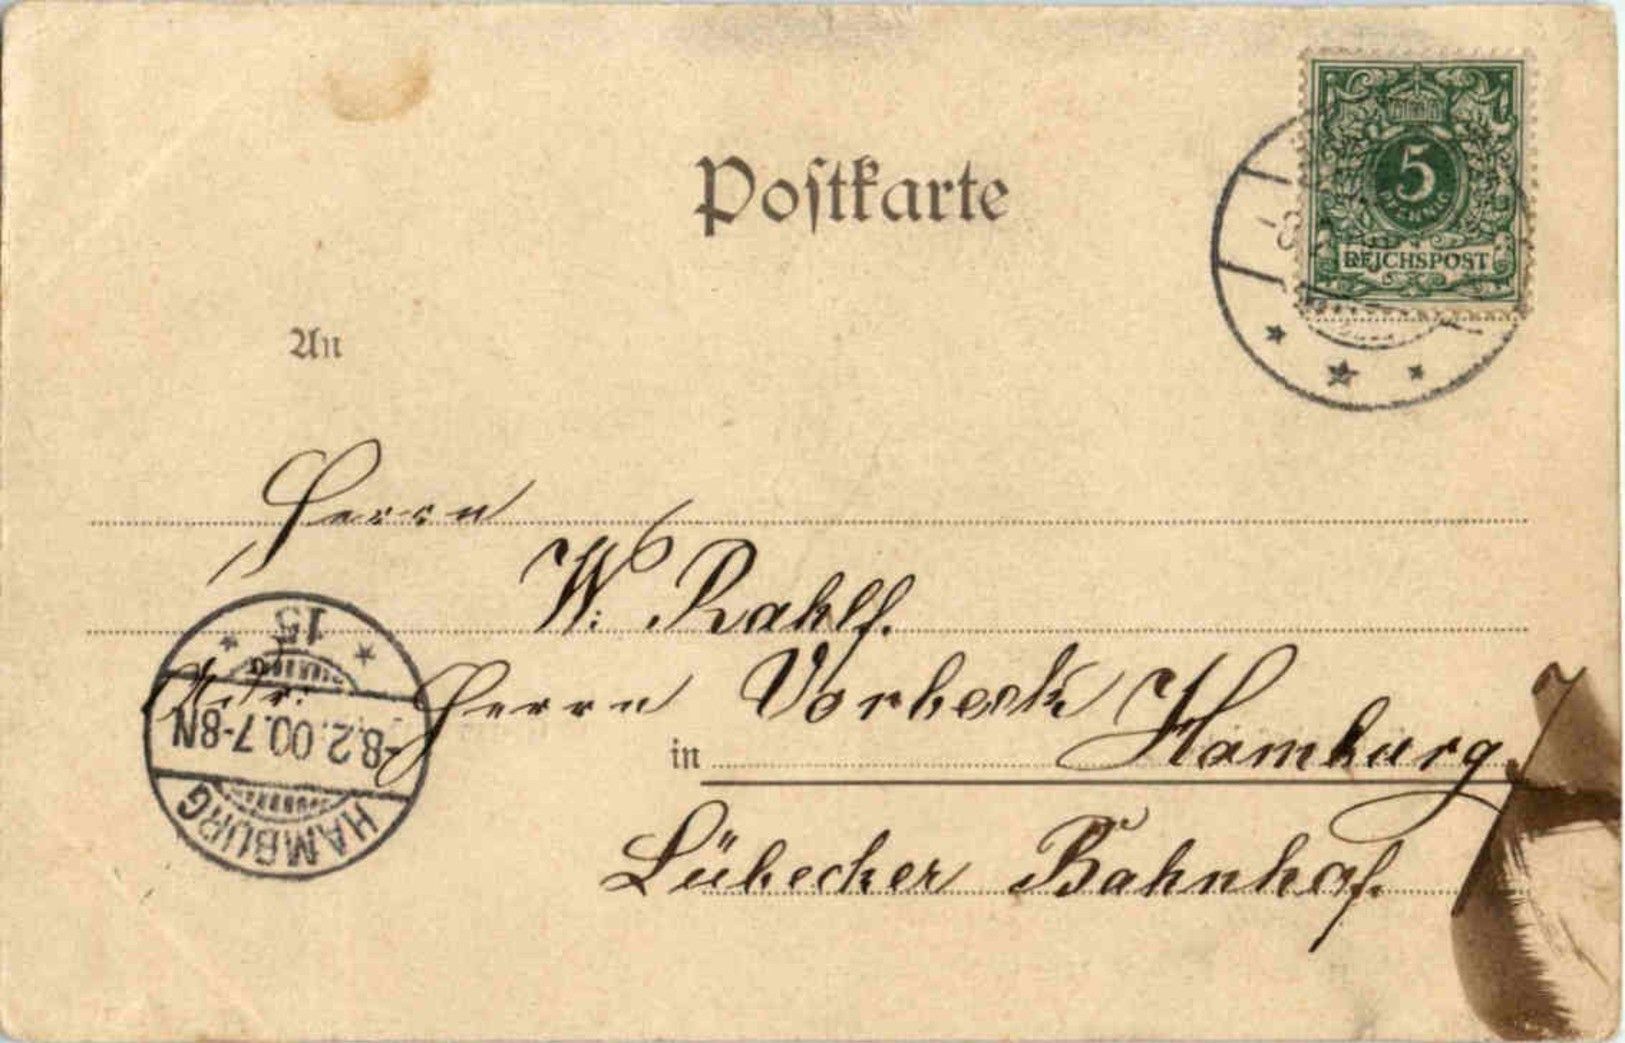 Postkarte
5
PFENNIG
REICHSPOST
An
Herrn
W. Rahlf.
Adr: Herrn Vorbeck
in Hamburg.
Lübecker Bahnhof.
HAMBURG
-8.2.00.7-8N
15